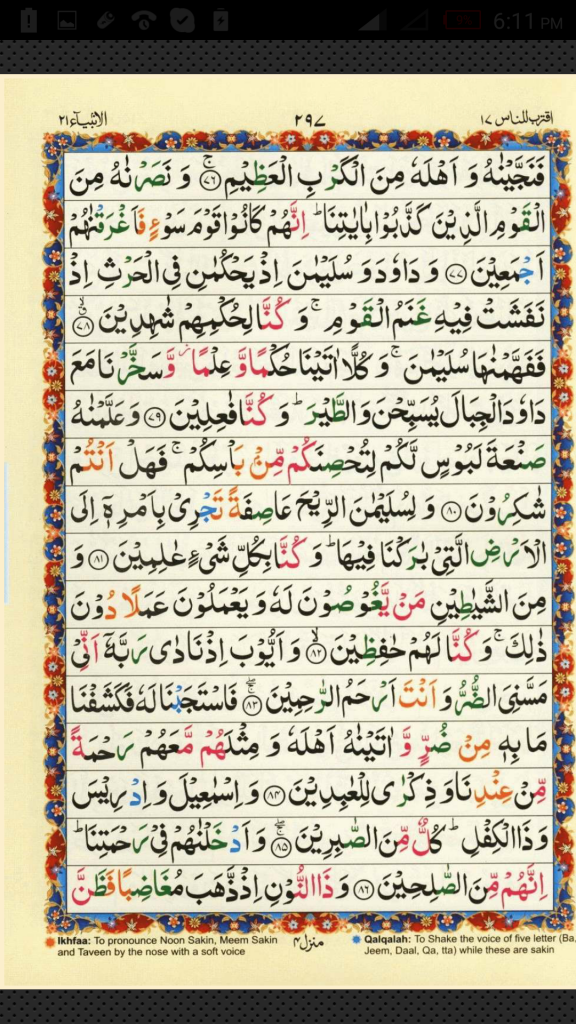 6:11 PM
الانبیآء ۲۱
۲۹۷
اقترب للناس ۱۷
فَنَجَّيْنٰهُ وَ اَهْلَهٗ مِنَ الْكَرْبِ الْعَظِيْمِ ۚ﴿۷۶﴾ وَ نَصَرْنٰهُ مِنَ
الْقَوْمِ الَّذِيْنَ كَذَّبُوْا بِاٰيٰتِنَا ؕ اِنَّهُمْ كَانُوْا قَوْمَ سَوْءٍ فَاَغْرَقْنٰهُمْ
اَجْمَعِيْنَ ﴿۷۷﴾ وَ دَاوٗدَ وَ سُلَيْمٰنَ اِذْ يَحْكُمٰنِ فِي الْحَرْثِ اِذْ
نَفَشَتْ فِيْهِ غَنَمُ الْقَوْمِ ۚ وَ كُنَّا لِحُكْمِهِمْ شٰهِدِيْنَ ﴿ۙ۷۸﴾
فَفَهَّمْنٰهَا سُلَيْمٰنَ ۚ وَ كُلًّا اٰتَيْنَا حُكْمًا وَّ عِلْمًا ؗ وَّ سَخَّرْنَا مَعَ
دَاوٗدَ الْجِبَالَ يُسَبِّحْنَ وَ الطَّيْرَ ؕ وَ كُنَّا فٰعِلِيْنَ ﴿۷۹﴾ وَ عَلَّمْنٰهُ
صَنْعَةَ لَبُوْسٍ لَّكُمْ لِتُحْصِنَكُمْ مِّنْۢ بَاْسِكُمْ ۚ فَهَلْ اَنْتُمْ
شٰكِرُوْنَ ﴿۸۰﴾ وَ لِسُلَيْمٰنَ الرِّيْحَ عَاصِفَةً تَجْرِيْ بِاَمْرِهٖۤ اِلَى
الْاَرْضِ الَّتِيْ بٰرَكْنَا فِيْهَا ؕ وَ كُنَّا بِكُلِّ شَيْءٍ عٰلِمِيْنَ ﴿۸۱﴾ وَ
مِنَ الشَّيٰطِيْنِ مَنْ يَّغُوْصُوْنَ لَهٗ وَ يَعْمَلُوْنَ عَمَلًا دُوْنَ
ذٰلِكَ ۚ وَ كُنَّا لَهُمْ حٰفِظِيْنَ ﴿ۙ۸۲﴾ وَ اَيُّوْبَ اِذْ نَادٰى رَبَّهٗۤ اَنِّيْ
مَسَّنِيَ الضُّرُّ وَ اَنْتَ اَرْحَمُ الرّٰحِمِيْنَ ﴿ۚۖ۸۳﴾ فَاسْتَجَبْنَا لَهٗ فَكَشَفْنَا
مَا بِهٖ مِنْ ضُرٍّ وَّ اٰتَيْنٰهُ اَهْلَهٗ وَ مِثْلَهُمْ مَّعَهُمْ رَحْمَةً
مِّنْ عِنْدِنَا وَ ذِكْرٰى لِلْعٰبِدِيْنَ ﴿۸۴﴾ وَ اِسْمٰعِيْلَ وَ اِدْرِيْسَ
وَ ذَا الْكِفْلِ ؕ كُلٌّ مِّنَ الصّٰبِرِيْنَ ﴿ۚۖ۸۵﴾ وَ اَدْخَلْنٰهُمْ فِيْ رَحْمَتِنَا ؕ
اِنَّهُمْ مِّنَ الصّٰلِحِيْنَ ﴿۸۶﴾ وَ ذَا النُّوْنِ اِذْ ذَّهَبَ مُغَاضِبًا فَظَنَّ
Ikhfaa: To pronounce Noon Sakin, Meem Sakin
and Taveen by the nose with a soft voice
منزل ۴
Qalqalah: To Shake the voice of five letter (Ba,
Jeem, Daal, Qa, tta) while these are sakin